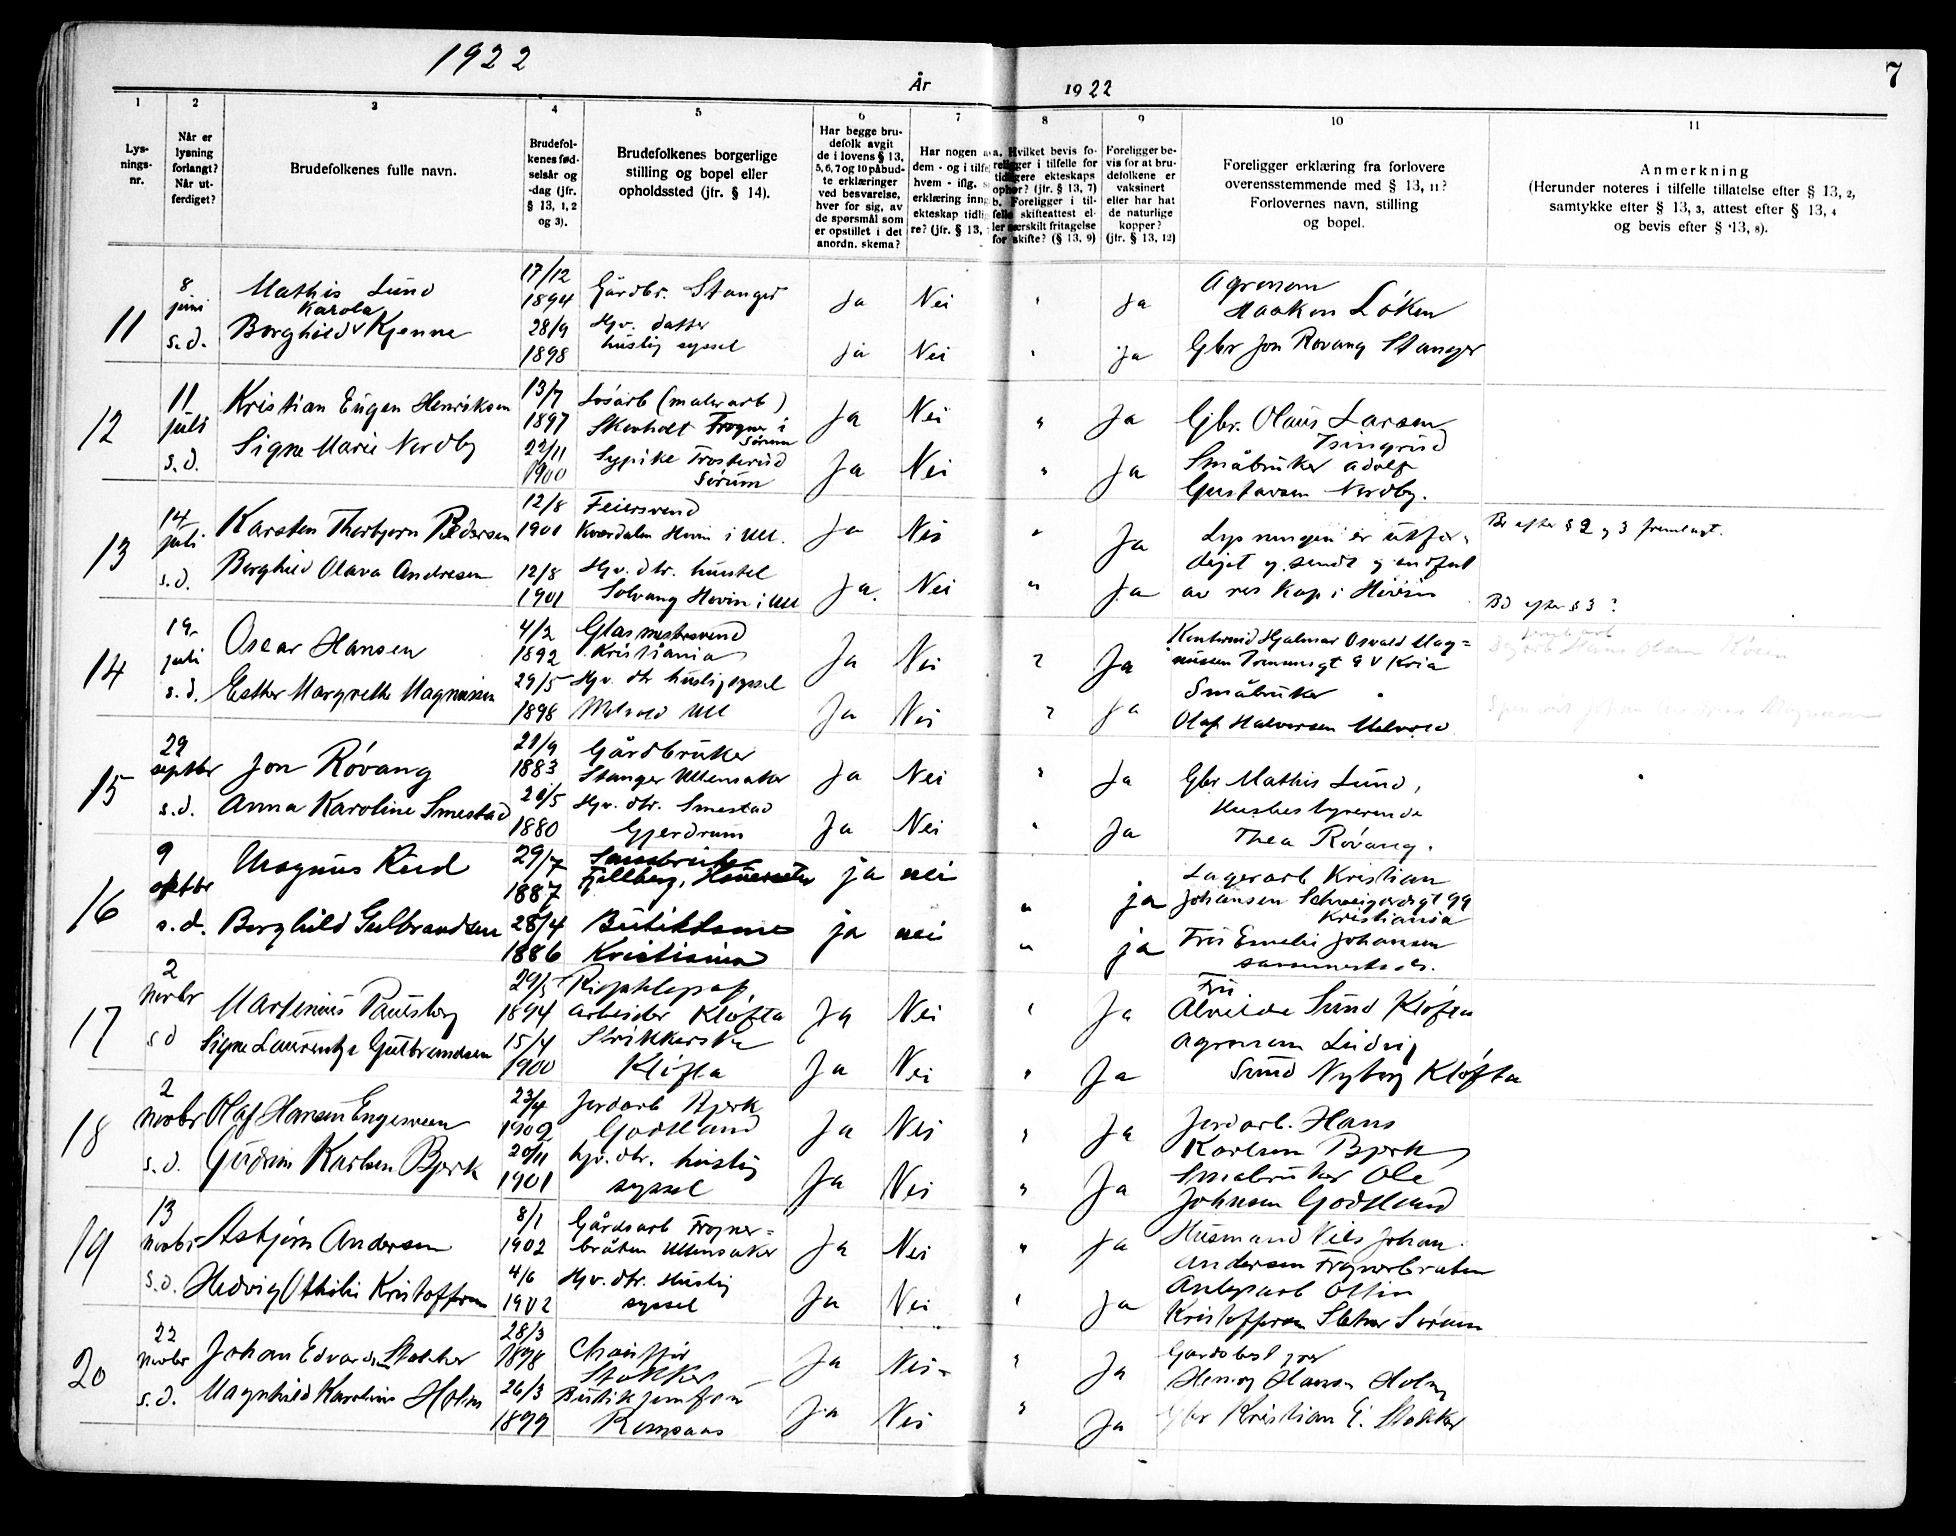 1922
År
1922
7
1
2
3
4
5
6
7
8
9
10
11
Lys-
nings-
nr.
Når er
lysning
forlangt?
Når ut-
ferdiget?
Brudefolkenes fulle navn.
Brudefol-
kenes fød-
selsår og
-dag (jfr.
§ 13, 1, 2
og 3).
Brudefolkenes borgerlige
stilling og bopel eller
opholdssted (jfr. § 14).
Har begge bru-
defolk avgit
de i lovens § 13,
5, 6, 7 og 10 påbud-
te erklæringer
ved besvarelse,
hver for sig, av
de spørsmål som
er opstillet i det
anordn. skema?
Har nogen a
dem - og i tilfe
hvem - iflg. s
erklæring inng
ekteskap tidlig
re? (jfr. § 13,
a. Hvilket bevis fo-
religger i tilfelle for
tidligere ekteskaps
ophør? (jfr. § 13, 7)
b. Foreligger i til-
felle skifteattest el-
ler særskilt fritagelse
for skifte? (§ 13, 9)
Foreligger be-
vis for at bru-
defolkene er
vaksinert
eller har hat
de naturlige
kopper?
(jfr. § 13, 12)
Foreligger erklæring fra forlovere
overensstemmende med § 13, 11?
Forlovernes navn, stilling
og bopel.
Anmerkning
(Herunder noteres i tilfelle tillatelse efter § 13, 2,
samtykke efter § 13, 3, attest efter § 13, 4
og bevis efter § 13, 8).
11
8 juni
s.d.
Mathis Lund
Karola
Borghild Kjenne
17/12
1894
28/9
1898
Gårdbr. Stanger
Hjv. datter
huslig syssel
ja Nei " ja
ja Nei " ja
Agronom
Haakon Löken
Gbr Jon Rovang Stanger
12
11 juli
s.d.
Kristian Eugen Henriksen
Signe Marie Nordby
13/7
1897
22/11
1900
Lösarb (malerarb)
Skovholt Frogner i
Sörum
Sypike Frosterud
Sörum
Ja Nei " Ja
Ja Nei " Ja
Gbr. Olaus Larsen
Småbruker Adolf
Gustavsen Nordby.
13
14 juli
s.d.
Karsten Thorbjørn Pedersen
Borghild Olava Andresen
12/8
1901
12/8
1901
Feiersvend
Kverdalen Hovin i Ull.
Hjv. dtr. hustel
Solvang Hovin i Ull
Ja Nei " Ja
Ja. Nei " Ja
Lysningen er utfær-
diget og sendt
av res kap i Hovin
Bd efter § 2 og 3 fremlagt.
Bd efter § 3 ?
14
19 juli
s.d.
Oscar Hansen
Esther Margrethe Magnussen
4/2
1892
29/5
1898
Glasmestersvend
Kristiania
Hjv. dtr huslig syssel
Melvold Ull
Ja Nei " Ja
Ja Nei " ja
Hjalmar Osvald Mag-
nussen 9 V Kria
Småbruker
Olaf Halvorsen Melvold
15
29
septbr
s.d.
Jon Rövang
Anna Karoline Smestad
21/9
1883
20/5
1880
Gårdbruker
Stanger Ullensaker
Hjv. dtr. Smestad
Gjerdrum
Ja Nei " Ja
Ja Nei " Ja
Gbr Mathis Lund,
Husbestyrerinde
Thea Rövang.
16
9
oktbr
s.d.
Magnus Rud
Borghild Gulbrandsen
29/7
1887
28/4
1886
Fjellberg,
Butikdame
Kristiania
ja nei " ja
ja nei " ja
Lagerarb Kristian
Johansen Schweigaardsgt 99
Kristiania
Fru Emelie Johansen
sammesteds.
17
2
novbr
s d
Martinius Paulsberg
Signe Laurentze Gulbrandsen
29/5
1894
15/4
1900
arbeider Klöfta
Strikkerske
Klöfta
Ja Nei " Ja
Ja Nei " Ja
Fru
Alvilde Sund Klöfta
Agronom Ludvig
Sund Nyborg Klöfta
18
2
novbr
s.d.
Olaf Hansen Engesveen
Gudrun Karlsen Bjerk
23/4
1902
20/11
1901
Jordarb Bjerk
Godtland
hjv. dtr. huslig
syssel
Ja Nei " Ja
Ja Nei " Ja
Jordarb. Hans
Karlsen Bjerk
Småbruker Ole
Johnsen Godtland
19
13
novbr
s.d.
Asbjørn Andersen
Hedvig Othilie Kristoffersen
8/1
1902
4/6
1902
Gårdsarb Frogner-
bråten Ullensaker
Hjv. dtr. Huslig
syssel
Ja Nei " Ja
Ja Nei " Ja
Husmand Nils Johan
Andersen Frognerbråten
Anlegsarb Ottin
Kristoffersen Sletner Sörum
20
22
novbr
s.d.
Johan Edvardsen Stokker
Magnhild Karoline Holm
28/3
1898
26/3
1899
Chauffør
Stokker
Butikjomfru
Romsaas
Ja Nei " Ja
Ja Nei " Ja
Gårdsbestyrer
Henry Hansen Holm
Gbr Kristian E. Stokker